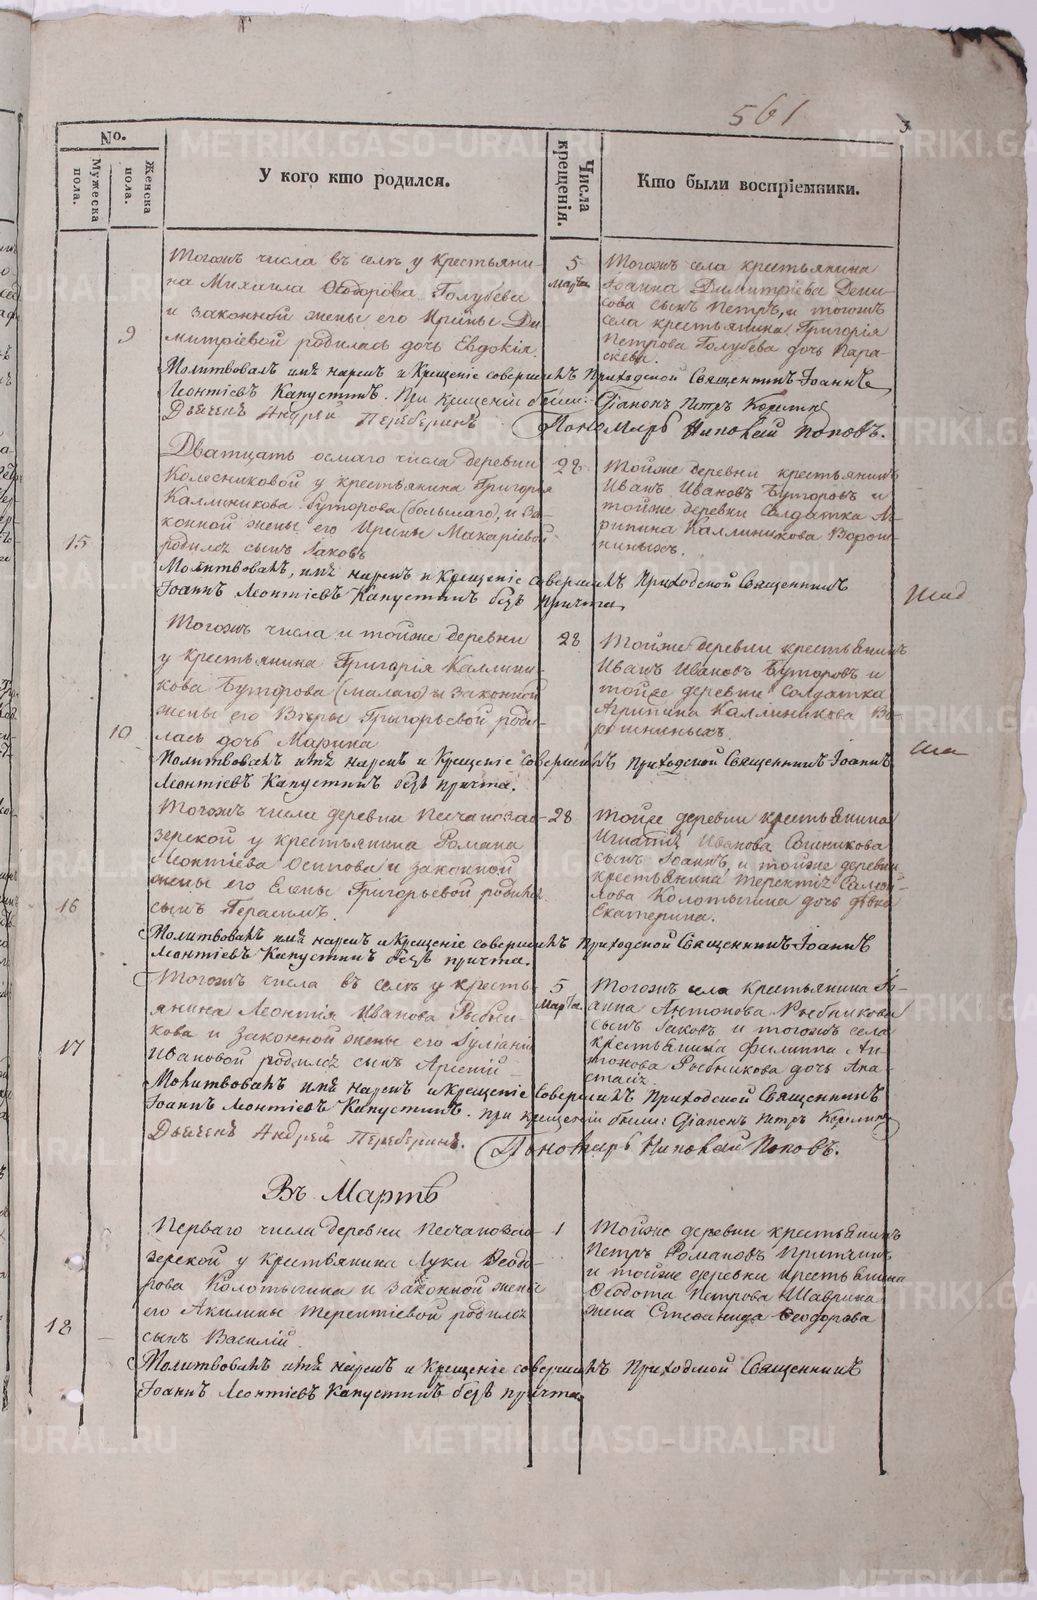 561
3
№.
Мужеска пола.
Женска пола.
У кого кто родился.
Числа крещенія.
Кто были воспріемники.
9
Тогожъ числа въ селѣ у крестьяни-
на Михаила Ѳеодорова Голубева
и законной жены его Ирины Ди
митріевой родилась дочь Евдокія.
5
Марта
Тогожъ села крестьянина
Іоанна Димитріева Дени-
сова сынъ Петръ, и тогожъ
села крестьянина Григорія
Петрова Голубева дочь Пара-
скева.
Молитвовалъ имя нарекъ и Крещеніе совершилъ Приходской Священникъ Іоаннъ
Леонтіевъ Капустинъ. При крещеніи были: Діаконъ Петръ
Дьячекъ Андрей Переберинъ Пономарь Николай Поповъ.
15
Дватцать осмаго числа деревни
Колесниковой у крестьянина Григорія
Каллиникова Буторова (большаго), и за-
конной жены его Ирины Макаріевой
родился сынъ Іаковъ
28
Тойже деревни крестьянинъ
Иванъ Ивановъ Буторовъ и
тойже деревни Солдатка Аг-
рипина Каллиникова Ворош-
ниныхъ.
Молитвовалъ, имя нарекъ и Крещеніе совершилъ Приходской Священникъ
Іоаннъ Леонтіевъ Капустинъ безъ причта.
10
Тогожъ числа и тойже деревни
у крестьянина Григорія Каллини-
кова Буторова (малаго) и законной
жены его Вѣры Григорьевой роди-
лась дочь Марина
28
Тойже деревни крестьянинъ
Иванъ Ивановъ Буторовъ и
тойже деревни солдатка
Агрипина Каллиникова Во-
рошниныхъ.
Молитвовалъ имя нарекъ и Крещеніе совершилъ Приходской Священникъ Іоаннъ
Леонтіевъ Капустинъ безъ причта.
16
Тогожъ числа деревни Песчаноза-
зерской у крестьянина Романа
Леонтіева Осипова и законной
жены его Елены Григорьевой родился
сынъ Герасимъ.
28
Тойже деревни крестьянина
Игнатія Иванова
сынъ Іоаннъ, и тойже деревни
крестьянина Терентія Самой-
лова Колотыгина дочь дѣвка
Екатерина.
Молитвовалъ имя нарекъ и Крещеніе совершилъ Приходской Священникъ Іоаннъ
Леонтіевъ Капустинъ безъ причта.
17
Тогожъ числа въ селѣ у кресть-
янина Леонтія Иванова Рыбни-
кова и законной жены его Іуліаніи
Ивановой родился сынъ Арсеній
5
Марта
Тогожъ села крестьянина Іо-
анна Антонова Рыбникова
сынъ Іаковъ и тогожъ села
крестьянина Филиппа Ан-
тонова Рыбникова дочь Ана-
стасія.
Молитвовалъ имя нарекъ и Крещеніе совершилъ Приходской Священникъ
Іоаннъ Леонтіевъ Капустинъ. При крещеніи были: Діаконъ Петръ
Дьячекъ Андрей Переберинъ. Пономарь Николай Поповъ.
Въ Мартѣ
18
Перваго числа деревни Песчаноза-
зерской у крестьянина Луки Ѳеодо-
рова Колотыгина и законной жены
его Акилины Терентіевой родился
сынъ Василій.
1
Тойже деревни крестьянинъ
Петръ Романовъ
и тойже деревни крестьянина
Ѳеодота Петрова Шаврина
жена Стефанида Ѳеодорова
Молитвовалъ имя нарекъ и Крещеніе совершилъ Приходской Священникъ
Іоаннъ Леонтіевъ Капустинъ безъ причта.
METRIKI.GASO-URAL.RU